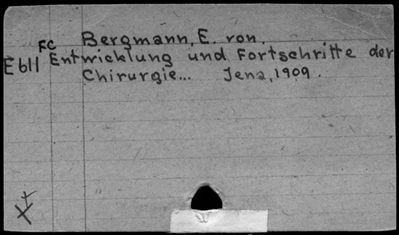 Bergmann, E. von.
FC
E611 Entwicklung und Fortschritte der
Chirurgie... Jena, 1909.